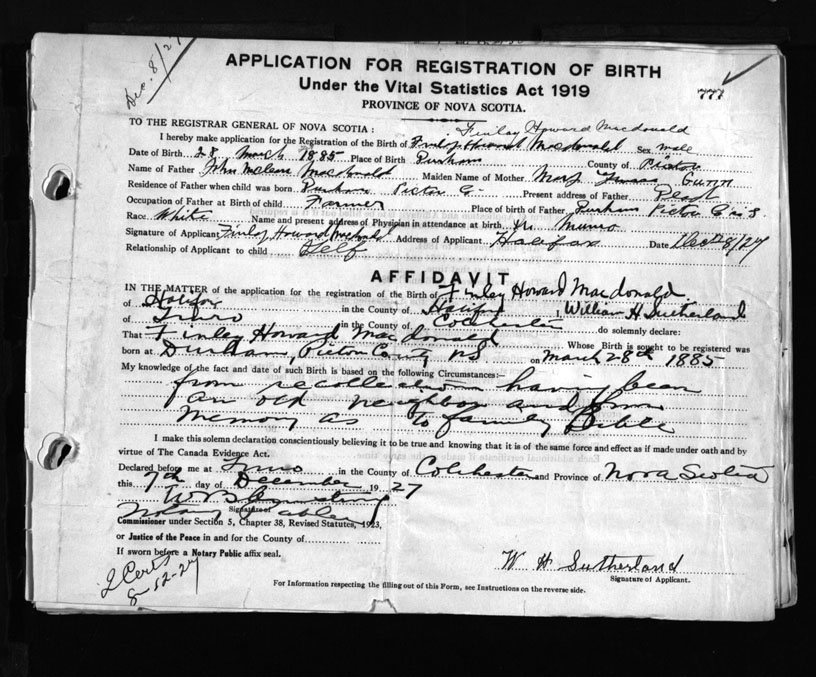 Dec. 8/27
APPLICATION FOR REGISTRATION OF BIRTH
Under the Vital Statistics Act 1919
777
PROVINCE OF NOVA SCOTIA.
TO THE REGISTRAR GENERAL OF NOVA SCOTIA:
Finlay Howard Macdonald
I hereby make application for the Registration of the Birth of Finlay Howard Macdonald Sex male
Date of Birth 28 March 1885 Place of Birth Durham County of Pictou
Name of Father John McLean MacDonald Maiden Name of Mother Mary Gunn
Residence of Father when child was born Durham Pictou Co Present address of Father Dead
Occupation of Father at Birth of child Farmer Place of birth of Father Durham Pictou Co N.S
Race White Name and present address of Physician in attendance at birth Dr. Munro
Signature of Applicant Finlay Howard McDonald Address of Applicant Halifax Date Dec 8/27
Relationship of Applicant to child Self
AFFIDAVIT
IN THE MATTER of the application for the registration of the Birth of Finlay Howard Macdonald
of Halifax in the County of Halifax I, William H Sutherland
of Truro in the County of Colchester do solemnly declare:
That Finlay Howard Macdonald Whose Birth is sought to be registered was
born at Durham, Pictou County NS on March 28th 1885
My knowledge of the fact and date of such Birth is based on the following Circumstances:—
from recollection having been
an old neighbor and from
Memory as to family Bible
I make this solemn declaration conscientiously believing it to be true and knowing that it is of the same force and effect as if made under oath and by
virtue of The Canada Evidence Act.
Declared before me at Truro in the County of Colchester and Province of Nova Scotia
this 7th day of December 1927
Signature of
Notary Public
Commissioner under Section 5, Chapter 38, Revised Statutes, 1923,
or Justice of the Peace in and for the County of
If sworn before a Notary Public affix seal.
W H Sutherland
Signature of Applicant.
2 Certs
8-12-27
For Information respecting the filling out of this Form, see Instructions on the reverse side.